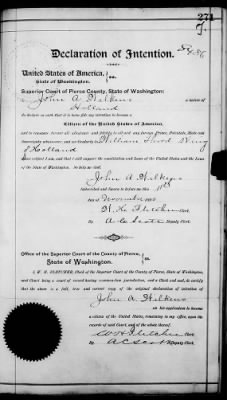 271
Declaration of Intention.
United States of America, } ss.
State of Washington.
Superior Court of Pierce County, State of Washington:
I, John A. Wilkens a native of
Holland
do declare on oath that it is bona fide my intention to become a
Citizen of the United States of America,
and to renounce forever all allegiance and fidelity to all and any foreign Prince, Potentate, State and
Sovereignty whatsoever, and particularly to William Third King
of Holland
whose subject I am, and that I will support the constitution and laws of the United States and the Laws
of the State of Washington. So help me God.
John A. Wilkens
Subscribed and Sworn to before me this 11th
day November
W. H. Fletcher Clerk
By A. C. Scott Deputy Clerk.
Office of the Superior Court of the County of Pierce, } ss.
State of Washington.
I, W. H. FLETCHER, Clerk of the Superior Court of the County of Pierce, State of Washington,
said Court being a court of record having common-law jurisdiction, and a Clerk and seal, do certify
that the above is a full, true and correct copy of the original declaration of intention of
John A. Wilkens
an applicant to become
a citizen of the United States, remaining in my office, upon the
records of said Court, and of the whole thereof.
W H Fletcher Clerk
By A C Scott Deputy Clerk.